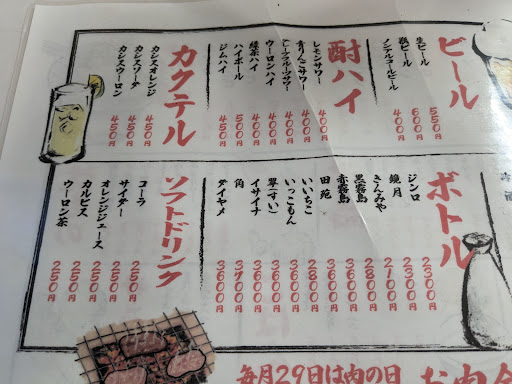 ビール
生ビール 550円
瓶ビール 600円
ノンアルコールビール 400円
酎ハイ
レモンサワー 400円
青りんごサワー 400円
グレープフルーツサワー 400円
ウーロンハイ 400円
緑茶ハイ 400円
ハイボール 500円
ジムハイ 450円
カクテル
カシスオレンジ 450円
カシスソーダ 450円
カシスウーロン 450円
ボトル
ジンロ 2300円
鏡月 2300円
きんみや 2100円
黒霧島 2800円
赤霧島 3600円
田苑 3600円
いいちこ 2800円
いっこもん 3600円
翠(すい) 3600円
イサイナ 3600円
角 3700円
ダイヤメ 3600円
ソフトドリンク
コーラ 250円
サイダー 250円
オレンジジュース 250円
カルピス 250円
ウーロン茶 250円
毎月29日は肉の日